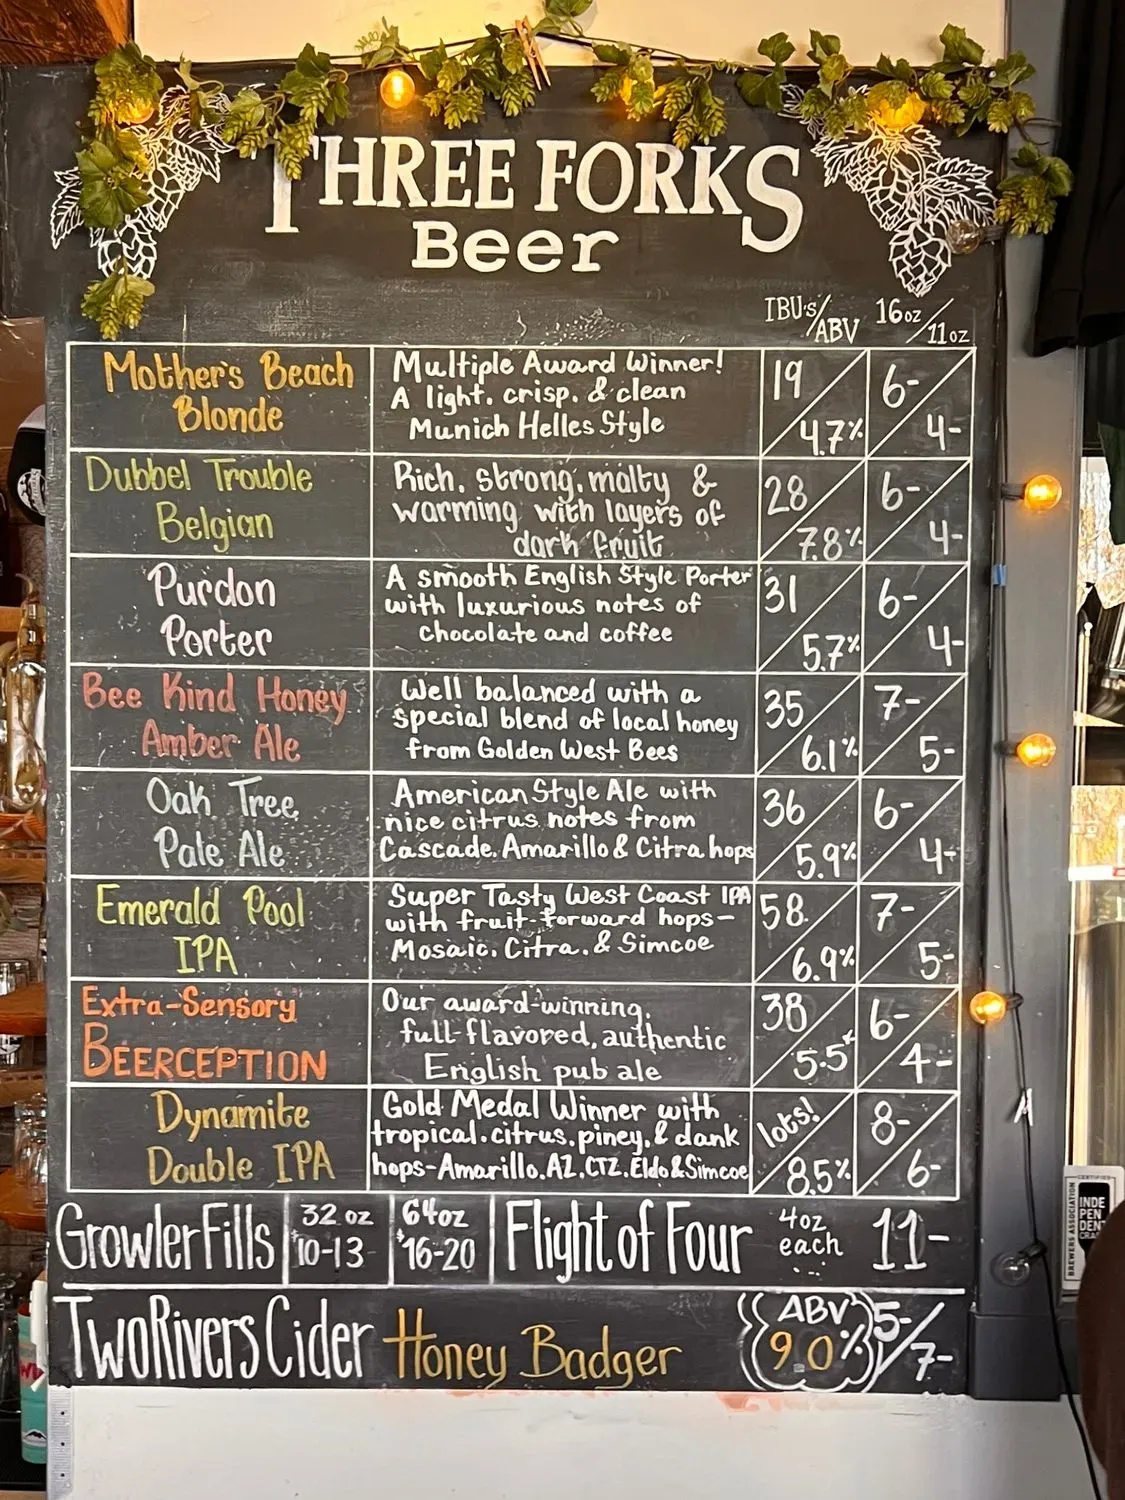 THREE FORKS
Beer
IBU's/ABV 16oz/11oz
Mother's Beach
Blonde
Multiple Award Winner!
A light, crisp, & clean
Munich Helles Style
19
4.7%
6-
4-
Dubbel Trouble
Belgian
Rich, strong, malty &
warming with layers of
dark fruit
28
7.8%
6-
4-
Purdon
Porter
A smooth English Style Porter
with luxurious notes of
chocolate and coffee
31
5.7%
6-
4-
Bee Kind Honey
Amber Ale
Well balanced with a
special blend of local honey
from Golden West Bees
35
6.1%
7-
5-
Oak Tree
Pale Ale
American Style Ale with
nice citrus notes from
Cascade, Amarillo & Citra hops
36
5.9%
6-
4-
Emerald Pool
IPA
Super Tasty West Coast IPA
with fruit-forward hops-
Mosaic, Citra, & Simcoe
58
6.9%
7-
5-
Extra-Sensory
BEERCEPTION
Our award-winning,
full-flavored, authentic
English pub ale
38
5.5%
6-
4-
Dynamite
Double IPA
Gold Medal Winner with
tropical, citrus, piney, & dank
hops-Amarillo, AZ, CTZ, Eldo & Simcoe
lots!
8.5%
8-
6-
Growler Fills
32 oz
$10-13
64oz
$16-20
Flight of Four
4oz
each
11-
Two Rivers Cider Honey Badger
ABV
9.0%
5-/7-
CERTIFIED
INDE
PEN
DENT
CRAFT
BREWERS ASSOCIATION